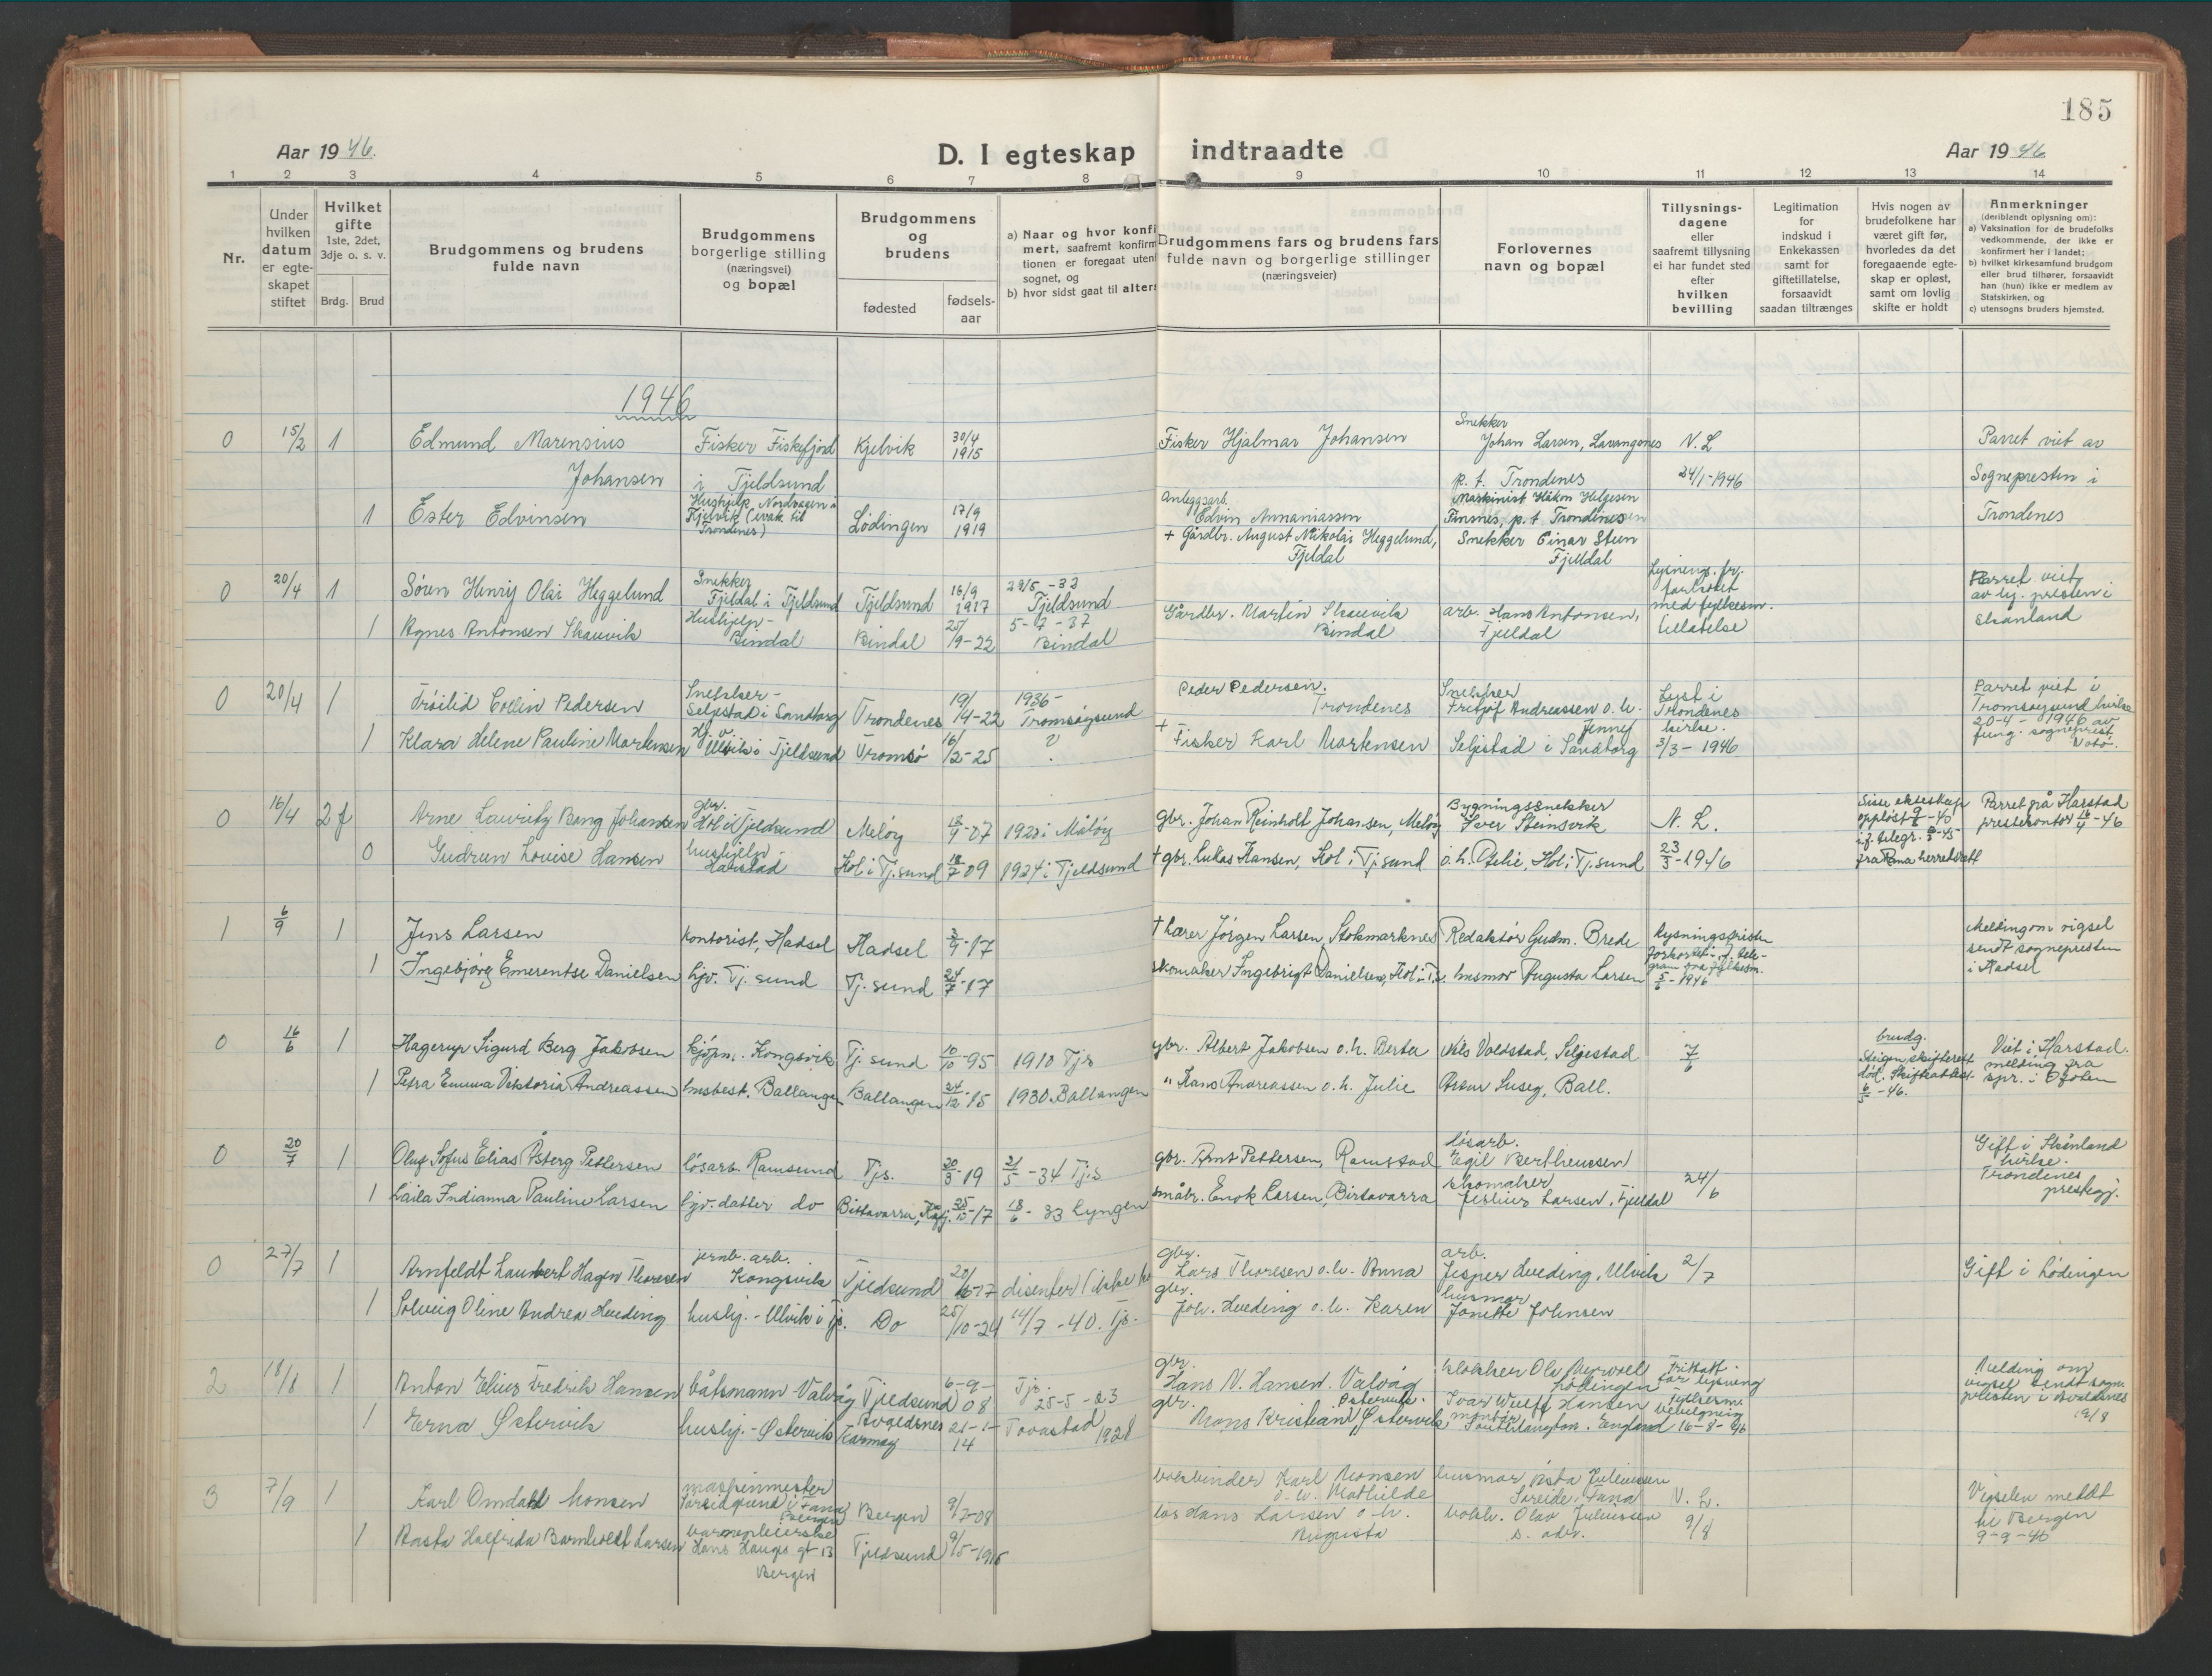 185
Aar 1946.
D. I egteskap indtraadte
Aar 1946
1 2 3 4 5 6 7 8 9 10 11 12 13 14
Nr.
Under hvilken datum er egteskapet stiftet
Hvilket gifte 1ste, 2det, 3dje o. s. v.
Brdg. Brud
Brudgommens og brudens fulde navn
Brudgommens borgerlige stilling (næringsvei) og bopæl
Brudgommens og brudens
fødested
fødselsaar
a) Naar og hvor konfi
mert, saafremt konfirm
tionen er foregaat uten
sognet, og
b) hvor sidst gaat til alters
Brudgommens fars og brudens fars
fulde navn og borgerlige stillinger
(næringsveier)
Forlovernes navn og bopæl
Tillysningsdagene eller saafremt tillysning ei har fundet sted efter hvilken bevilling
Legitimation for indskud i Enkekassen samt for giftetillatelse, forsaavidt saadan tiltrænges
Hvis nogen av brudefolkene har været gift før, hvorledes da det foregaaende egteskap er opløst, samt om lovlig skifte er holdt
Anmerkninger
(deriblandt oplysning om):
a) Vaksination for de brudefolks vedkommende, der ikke er konfirmert her i landet;
b) hvilket kirkesamfund brudgom eller brud tilhører, forsaavidt han (hun) ikke er medlem av Statskirken, og
c) utensogns bruders hjemsted.
1946
0 15/2 1 Edmund Marensius Johansen Fisker Fiskefjord i Tjeldsund Kjelvik 30/4 1915 Fisker Hjalmar Johansen Snekker Johan Larsen, Lavangsnes p. t. Trondenes N. L 24/1-1946 Parret viet av Sognepresten i Trondenes
1 Ester Edvinsen Hushjelp Nordvagen i Kjelvik (evak til Trondenes) Lødingen 17/9 1919 Anleggsarb. Edvin Annaniassen Maskinist Håkon Helgesen Finsnes, p. t. Trondenes
0 20/4 1 Søren Henrij Olai Heggelund Snekker Fjeldal i Tjeldsund Tjeldsund 16/9 1917 28/5-32 Tjeldsund + Gårdbr. August Nikolai Heggelund, Fjeldal Snekker Einar Steen Fjeldal Lysnings.fr. forkortet med fylkesm. tillatelse Parret viet av hj. presten i Skånland
1 Agnes Antonsen Skauvik Hushjelp - Bindal Bindal 25/9-22 5-7-37 Bindal Gårdbr. Martin Skauvik Bindal arb. Hans Antonsen, Fjeldal
0 20/4 1 Trøilid Collin Pedersen Snekker - Seljestad i Sandtorg Trondenes 19/4-22 1936 - Tromsøysund Peder Pedersen. Trondenes Snekker Fritjof Andreassen o. h. Jenny Seljestad i Sandtorg Lyst i Trondenes kirke. 3/3-1946 Parret viet i Tromsøysund kirke 20-4-1946 av fung. sogneprest
1 Klara Helene Pauline Martensen Hj. v. Ulvik i Tjeldsund Tromsø 16/2-25 ? + Fisker Karl Mortensen
0 16/4 2 f Arne Lauritz Bang Johansen gbr. Hol i Tjeldsund Meløy 18/4-07 1923 i Måløy gbr. Johan Reinholt Johansen, Meløy Bygningssnekker Iver Steinsvik N. L. 23/3-1946 Siste ekteskap oppløst -40 i.f. telegr. -45 fra Rana herredsrett Parret på Harstad prestekontor 16/4-46
0 Gudrun Lovise Hansen hushjelp - Harstad Hol i Tj.sund 18/7 09 1924 i Tjeldsund + gbr. Lukas Hansen, Hol i Tj.sund o. h. Otelie, Hol i Tj.sund
1 6/9 1 Jens Larsen Kontorist, Hadsel Hadsel 3/9-17 + Lærer Jørgen Larsen, Stokmarknes Redaktør Gudm. Brede Lysningsfristen forkortet i.f. telegram fra fylkesm. 5/6-1946 Melding om vigsel sendt sognepresten i Hadsel
1 Ingebjørg Emerentse Danielsen hjv. Tj. sund Tj. sund 24/7-17 skomaker Ingebrigt Danielsen, Hol i Tjs. husmor Augusta Larsen
0 16/6 1 Hagerup Sigurd Berg Jakobsen kjøpm. Kongsvik Tj. sund 10/10-95 1910 Tjs gbr. Albert Jakobsen o.h. Berta Nils Voldstad, Seljestad 7/6 brudg. Steigen skifterett død. Skifteattest 6/5-46. Viet i Harstad. melding fra spr. i Ofoten
1 Petra Emma Viktoria Andreassen husbest. Ballangen Ballangen 24/12-15 1930. Ballangen " Hans Andreassen o. h. Julie Oskar Suseg, Ball.
0 20/7 1 Oluf Sofus Elias Åsberg Pettersen løsarb. Ramsund Tjs. 20/3-19 21/5-34 Tjs gbr. Arnt Pettersen, Ramstad løsarb. Egil Bertheussen 24/6 Gift i Skånland kirke. Trondenes prestegj.
1 Laila Indianna Pauline Larsen hjv. datter do Birtavarra, Kåfj. 25/10-17 18/6-33 Lyngen småbr. Enok Larsen, Birtavarra skomaker Larsen, Fjeldal
0 27/7 1 Arnfeldt Lambert Hagen Thoresen jernb. arb. Kongsvik Tjeldsund 20/6-17 disenter (ikke gbr. Lars Thoresen o. h. Anna arb. Jesper Hveding, Ulvik 2/7 Gift i Lødingen
1 Solveig Oline Andrea Hveding hushj. - Ulvik i Tjs. Do 25/10-24 14/7-40. Tjs. gbr. Joh. Hveding o. h. Karen husmor Janette Johnsen
2 18/8 1 Anton Elius Fredrik Hansen båtsmann - Valvåg Tjeldsund 6-9-08 Tjs. 25-5-23 gbr. Hans N. Hansen. Valvåg klokker Ole Lødingen Fritatt for lysning Fylkesm. bevilgning 16-8-46 Melding om vigsel sendt sognepresten i Avaldsnes 19/8
1 Erna Østervik hushj. - Østervik Avaldsnes Karmøy 21-1-14 1928 gbr. Mons Kristian Østervik Østervik. Ivar Wulff Hansen England
3 7/9 1 Karl Omdahl Monsen maskinmester i Fana Bergen Bergen 9/7-08 bokbinder Karl Monsen o. h. Mathilde husmor Asta Juliussen Søreide, Fana N. L. 9/8 Vigselen meldt til Bergen 9-9-46
1 Aasta Halfrida Barnholdt Larsen barnepleierske Hans Hauges gt 13 Bergen Tjeldsund 9/5-1915 los Hans Larsen o. h. Augusta bokh. Olav Juliussen s. adr.